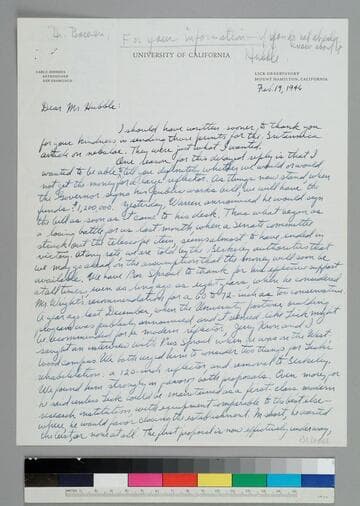 Dr. Bowen
For your information — if you do not already
know about it
Hubble
UNIVERSITY OF CALIFORNIA
LICK OBSERVATORY
MOUNT HAMILTON, CALIFORNIA
Feb. 19, 1946
Dear Mr. Hubble:
I should have written sooner to thank you
for your kindness in sending those prints for the Britannica
article on nebulae. They were just what I wanted.
One reason for this delayed reply is that I
wanted to be able to tell you definitely whether we would or would
not get the money for a large reflector. As things now stand, when
the Governor signs his public works bill, we will have the
funds: $1,200,000. Yesterday, Warren announced he would sign
the bill as soon as it came to his desk. Thus what began as
a losing battle for us last month, when a Senate committee
struck out the telescope item, seems almost to have ended in
victory. At any rate, we are told by the Berkeley authorities that
we may proceed on the assumption that the money will soon be
available. We have Pres. Sproul to thank for his effective support
at all times, even as long ago as eight years, when he considered
Mr. Wright's recommendation for a 60 or 72 inch as too conservative.
A year ago last December, when the University postwar building
program was publicly announced and it seemed Lick might
be recommended for a modern reflector, Jerry Kron and I
sought an interview with Pres Sproul when he was on the West.
We both urged him to consider two things for Lick's
rehabilitation: a 120-inch reflector and removal to Berkeley.
We found him strongly in favor of both proposals. Even more, for
he said unless Lick could be maintained as a first class modern
research institution with equipment comparable to the best else-
where, he would favor closing the establishment. In short, he wanted
the best or none at all. The first proposal is now effectively under way,